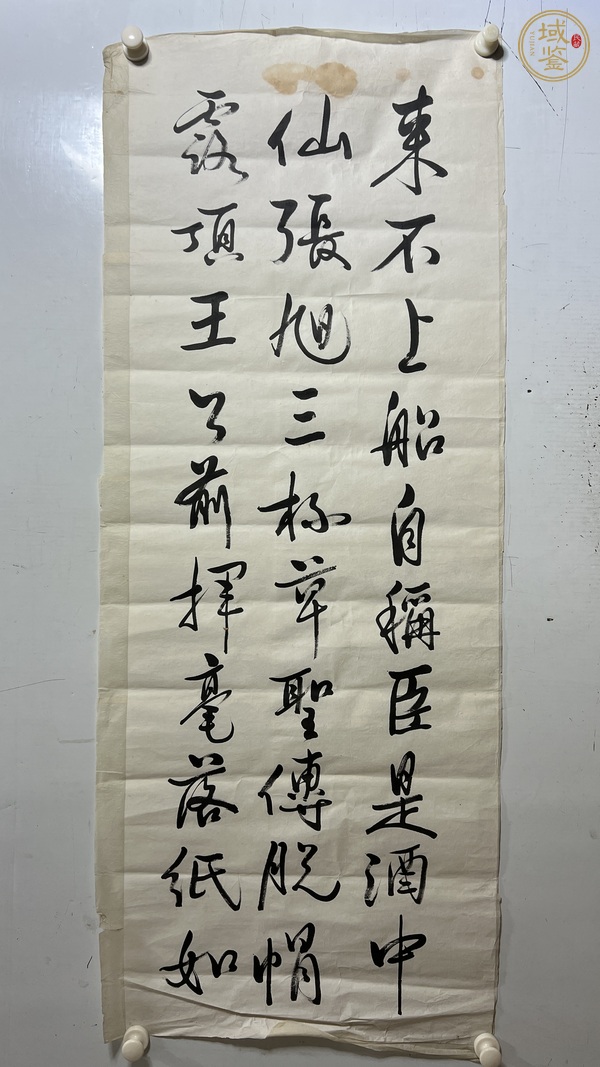 来不上船自稱臣是酒中
仙張旭三杯草聖傳脱帽
露頂王公前揮毫落紙如
域鉴
YUJIAN